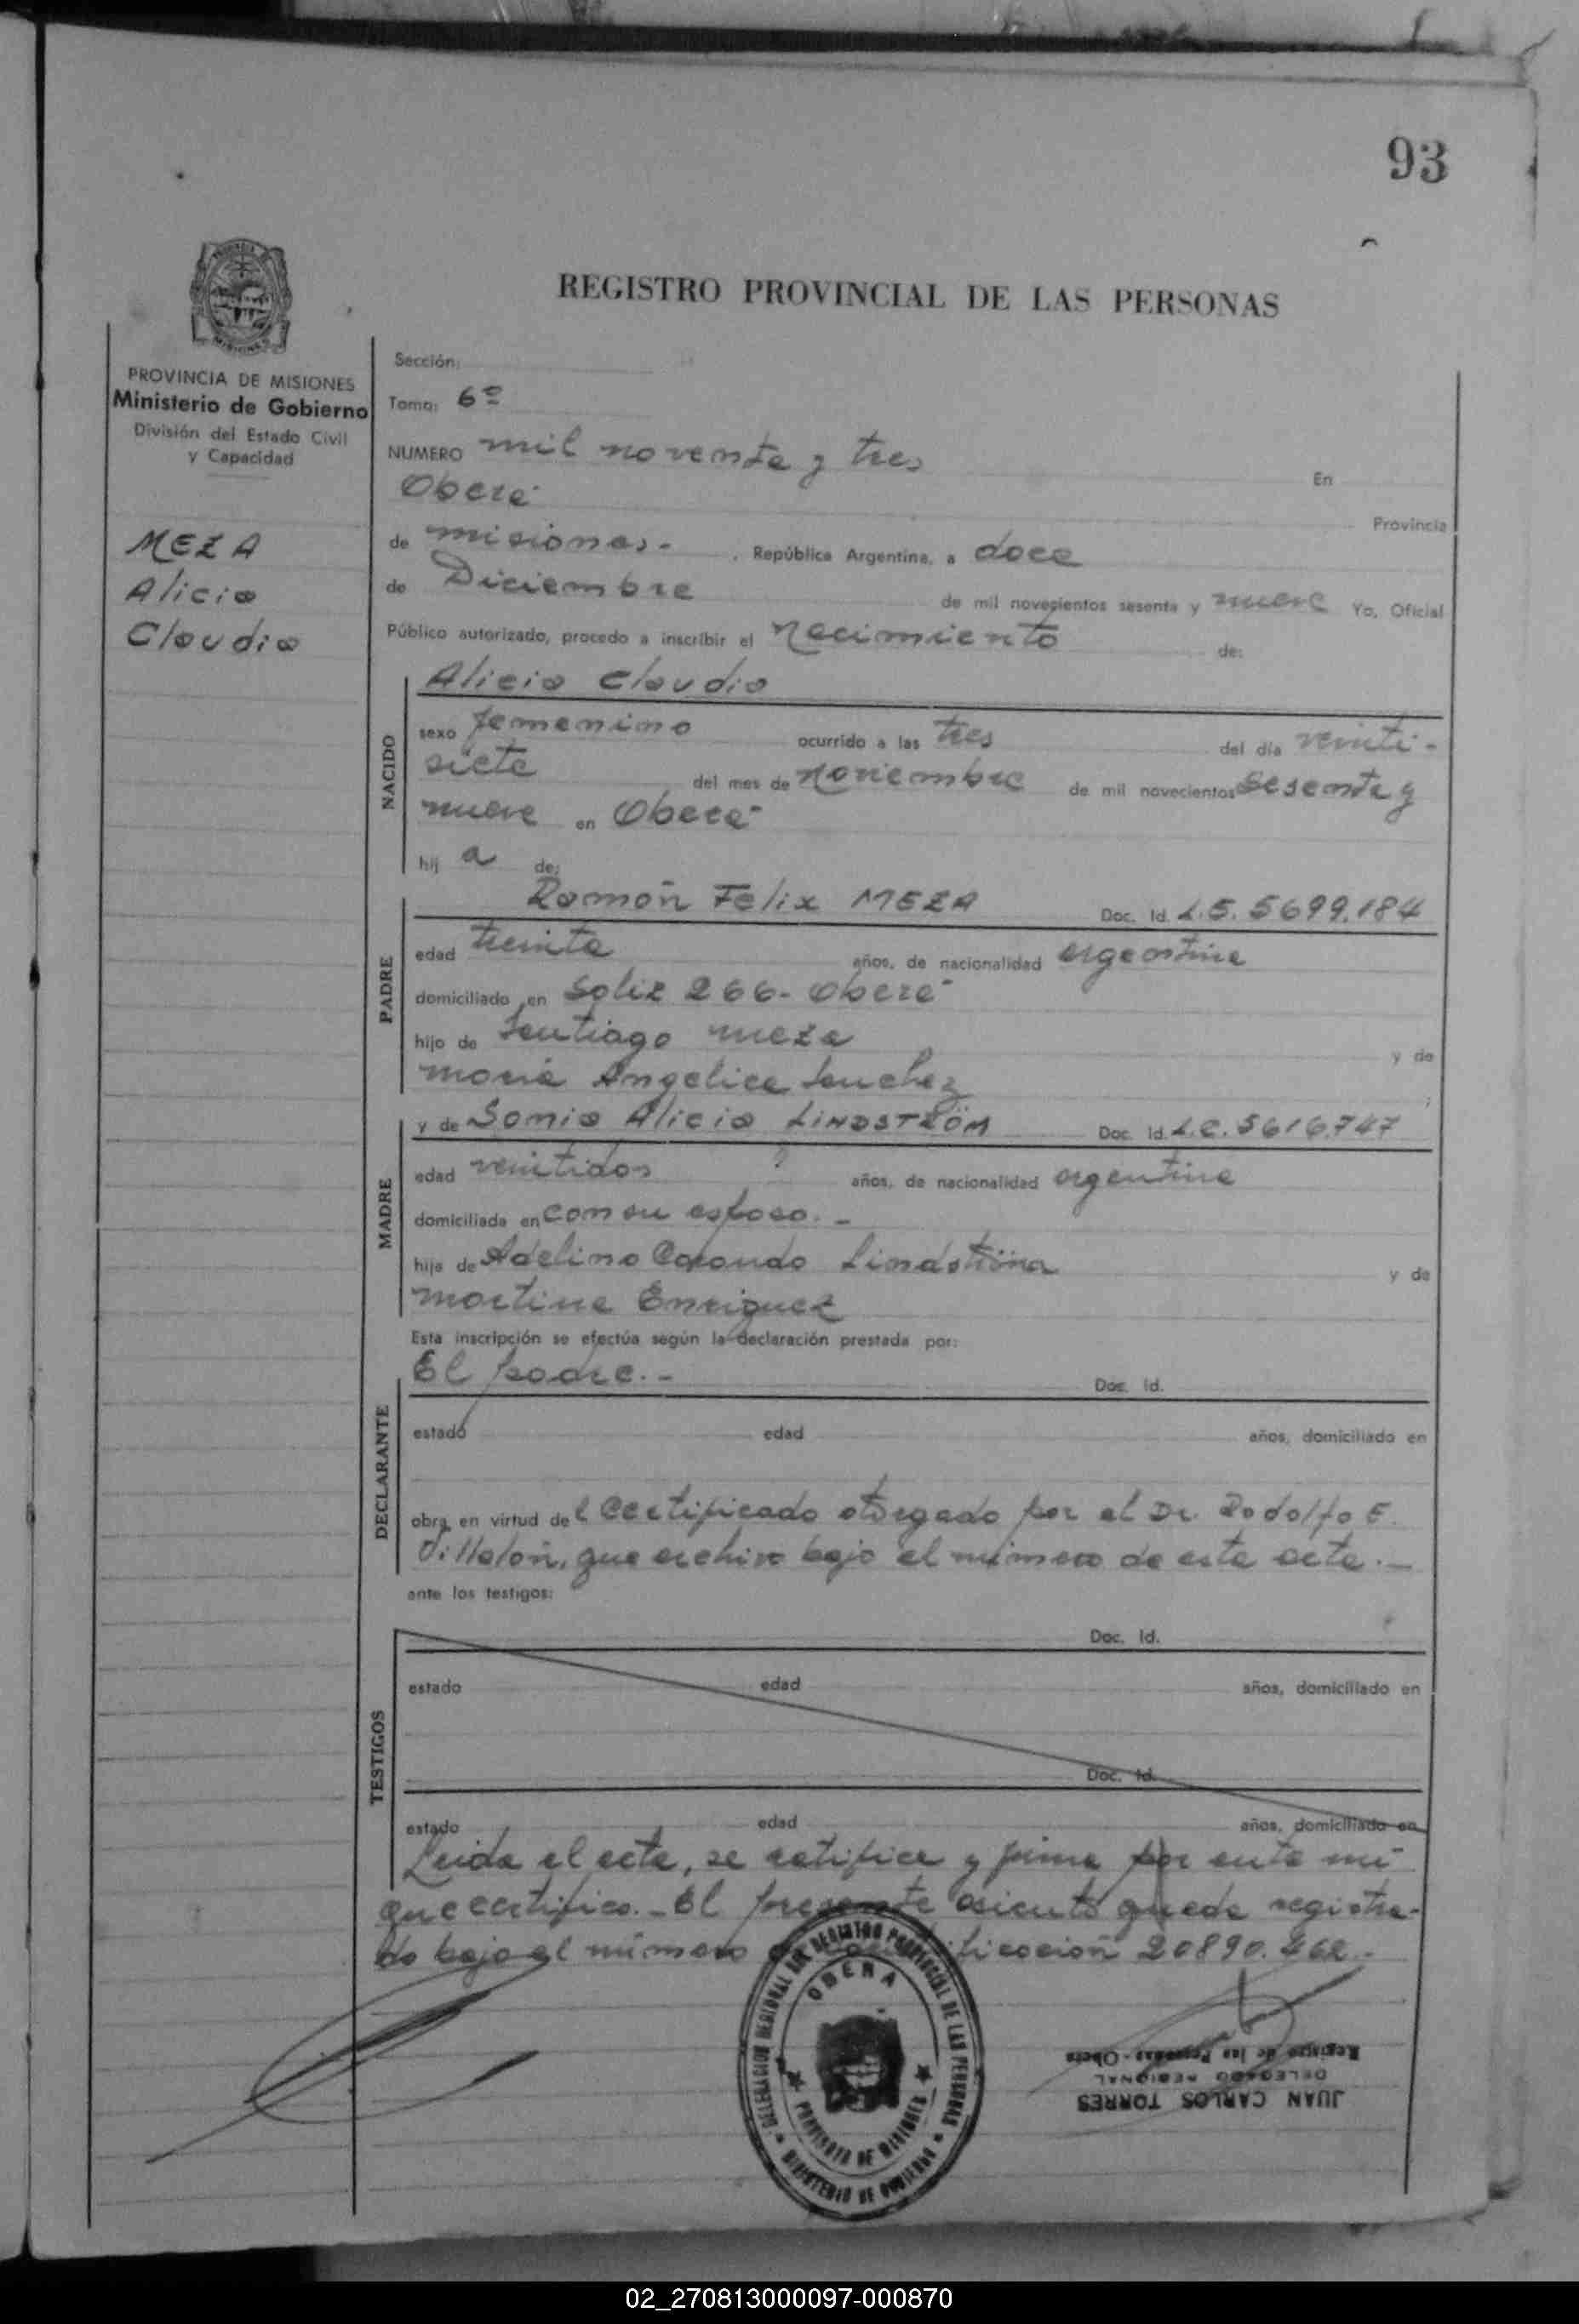 93
REGISTRO PROVINCIAL DE LAS PERSONAS
PROVINCIA DE MISIONES
Ministerio de Gobierno
División del Estado Civil
y Capacidad
MEZA
Alicia
Claudia
Sección:
Tomo: 6º
NUMERO mil noventa y tres En
Oberá Provincia
de misiones.- , República Argentina, a doce
de Diciembre de mil novecientos sesenta y nueve Yo, Oficial
Público autorizado, procedo a inscribir el nacimiento de:
NACIDO
Alicia Claudia
sexo femenino ocurrido a las tres del día veinti-
siete del mes de noviembre de mil novecientos sesenta y
nueve en Oberá
hij a de:
PADRE
Ramón Felix MEZA Doc. Id. L.E. 5699.184
edad treinta años, de nacionalidad argentina
domiciliado en 266- Oberá
hijo de Santiago meza y de
maria Angelica Sanchez
MADRE
y de Sonia Alicia LINDSTRÖM Doc. Id. L.C. 5616.747
edad veintidos años, de nacionalidad argentina
domiciliada en con su esposo.-
hija de Adelino Lindström y de
martina Enriquez
Esta inscripción se efectúa según la declaración prestada por:
DECLARANTE
El padre.- Doc. Id.
estado edad años, domiciliado en
obra en virtud de l certificado otorgado por el Dr. Rodolfo E.
Villalón, que archivo bajo el número de esta acta.-
ante los testigos:
TESTIGOS
Doc. Id.
estado edad años, domiciliado en
Doc. Id.
estado edad años, domiciliado en
Leida el acta, se ratifica y firma por ante mi
que certifico.- El presente asiento queda registra-
do bajo el número 20890.462.-
DELEGACION REGIONAL DEL REGISTRO PROVINCIAL DE LAS PERSONAS
OBERA
PROVINCIA DE MISIONES
MINISTERIO DE GOBIERNO
JUAN CARLOS TORRES
DELEGADO REGIONAL
Registro de las Personas - Obera
02_270813000097-000870